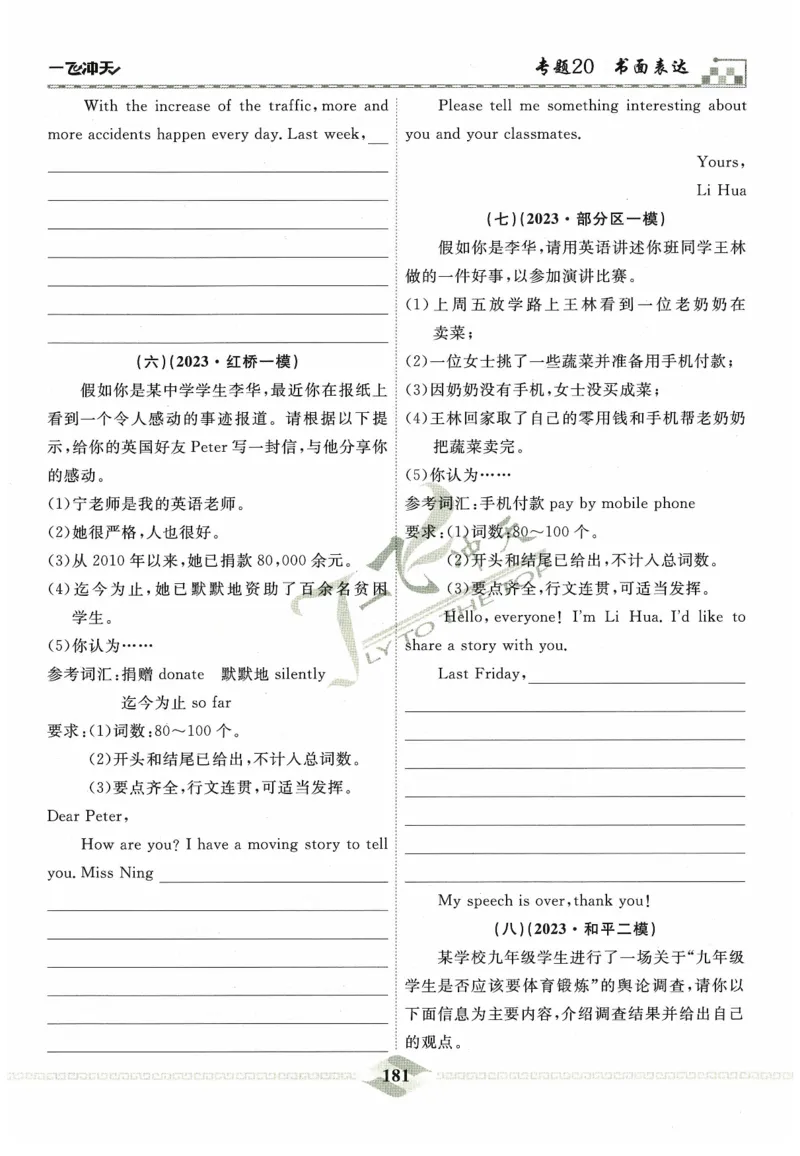 一飞冲天
专题20 书面表达
With the increase of the traffic, more and
more accidents happen every day. Last week,
(六)(2023·红桥一模)
假如你是某中学学生李华,最近你在报纸上
看到一个令人感动的事迹报道。请根据以下提
示,给你的英国好友 Peter 写一封信,与他分享你
的感动。
(1)宁老师是我的英语老师。
(2)她很严格,人也很好。
(3)从 2010 年以来,她已捐款 80,000 余元。
(4)迄今为止,她已默默地资助了百余名贫困
学生。
(5)你认为……
参考词汇:捐赠 donate 默默地 silently
迄今为止 so far
要求:(1)词数:80～100 个。
(2)开头和结尾已给出,不计入总词数。
(3)要点齐全,行文连贯,可适当发挥。
Dear Peter,
How are you? I have a moving story to tell
you. Miss Ning
Please tell me something interesting about
you and your classmates.
Yours,
Li Hua
(七)(2023·部分区一模)
假如你是李华,请用英语讲述你班同学王林
做的一件好事,以参加演讲比赛。
(1)上周五放学路上王林看到一位老奶奶在
卖菜;
(2)一位女士挑了一些蔬菜并准备用手机付款;
(3)因奶奶没有手机,女士没买成菜;
(4)王林回家取了自己的零用钱和手机帮老奶奶
把蔬菜卖完。
(5)你认为……
参考词汇:手机付款 pay by mobile phone
要求:(1)词数:80～100 个。
(2)开头和结尾已给出,不计入总词数。
(3)要点齐全,行文连贯,可适当发挥。
Hello, everyone! I'm Li Hua. I'd like to
share a story with you.
Last Friday,
My speech is over, thank you!
(八)(2023·和平二模)
某学校九年级学生进行了一场关于“九年级
学生是否应该要体育锻炼”的舆论调查,请你以
下面信息为主要内容,介绍调查结果并给出自己
的观点。
181
一飞冲天
LY TO THE TOP